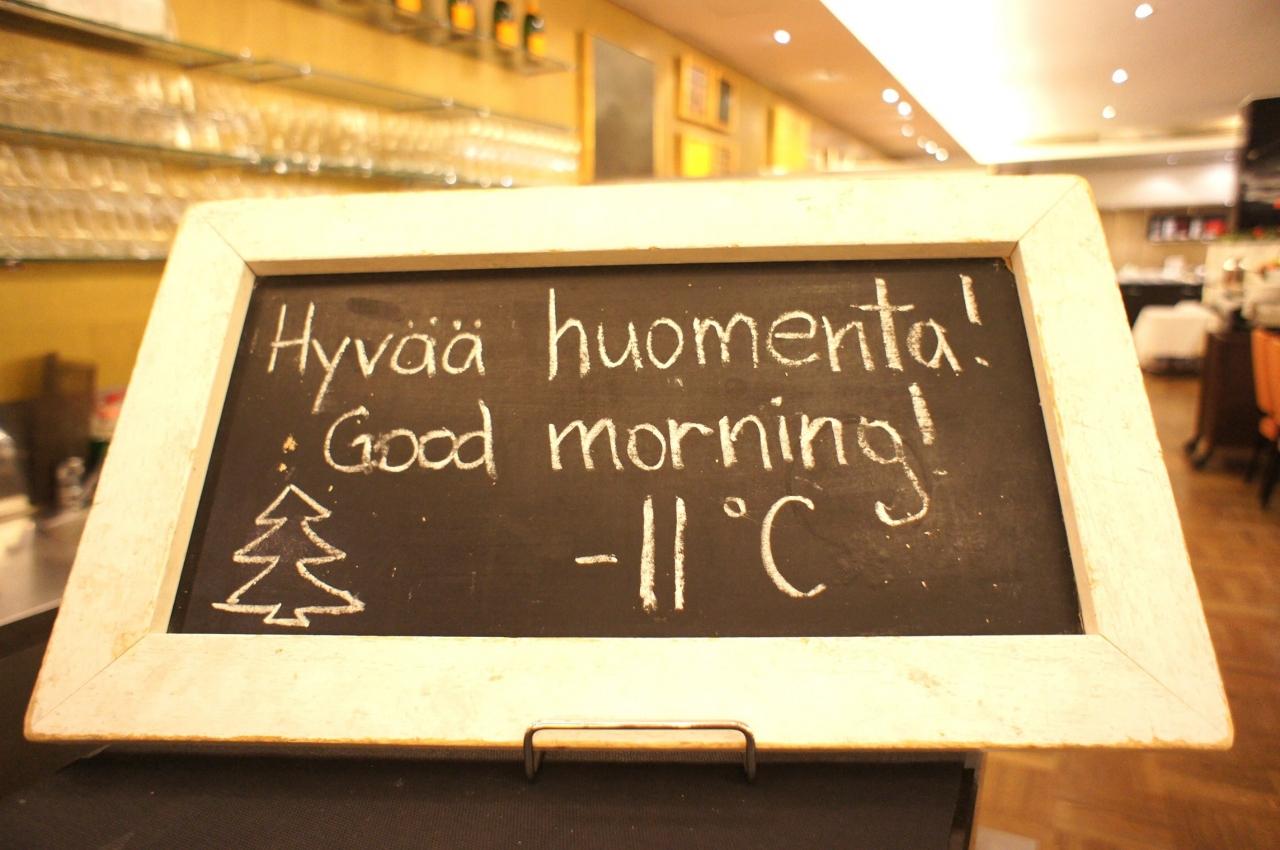 Hyvää huomenta!
Good morning!
-11 °C